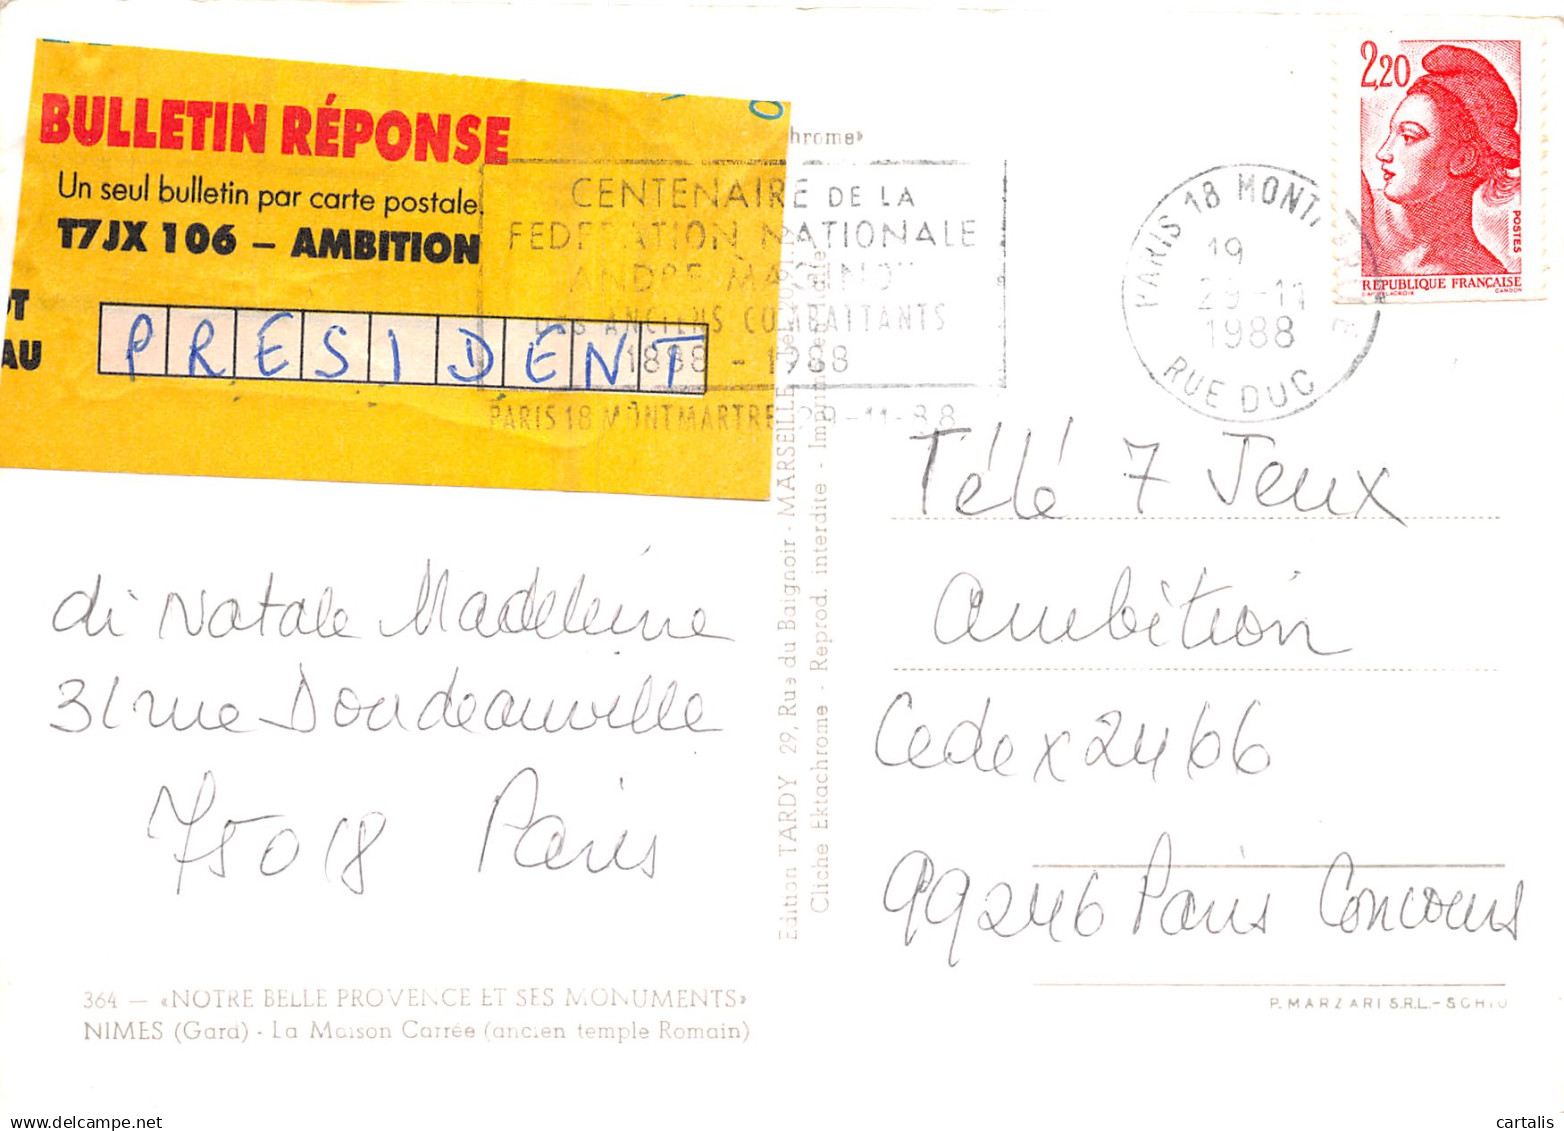 BULLETIN RÉPONSE
Un seul bulletin par carte postale.
T7JX 106 – AMBITION
OT
AU
PRESIDENT
hrome»
CENTENAIRE DE LA
FEDERATION NATIONALE
ANDRE MAGINOT
DES ANCIENS COMBATTANTS
1888 - 1988
PARIS 18 MONTMARTRE 29-11-88
PARIS 18 MONTMARTRE
19
29-11
1988
RUE DUC
2,20
POSTES
REPUBLIQUE FRANÇAISE
Télé 7 Jeux
Ambition
Cedex 2466
99246 Paris Concours
di Natale Madeleine
31 rue Doudeauville
75018 Paris
Edition TARDY 29, Rue du Baignoir - MARSEILLE
Cliche Ektachrome - Reprod. interdite - Imprimé en Italie
364 — «NOTRE BELLE PROVENCE ET SES MONUMENTS»
NIMES (Gard) - La Maison Carrée (ancien temple Romain)
P. MARZARI S.R.L. - SCHIO
cartalis